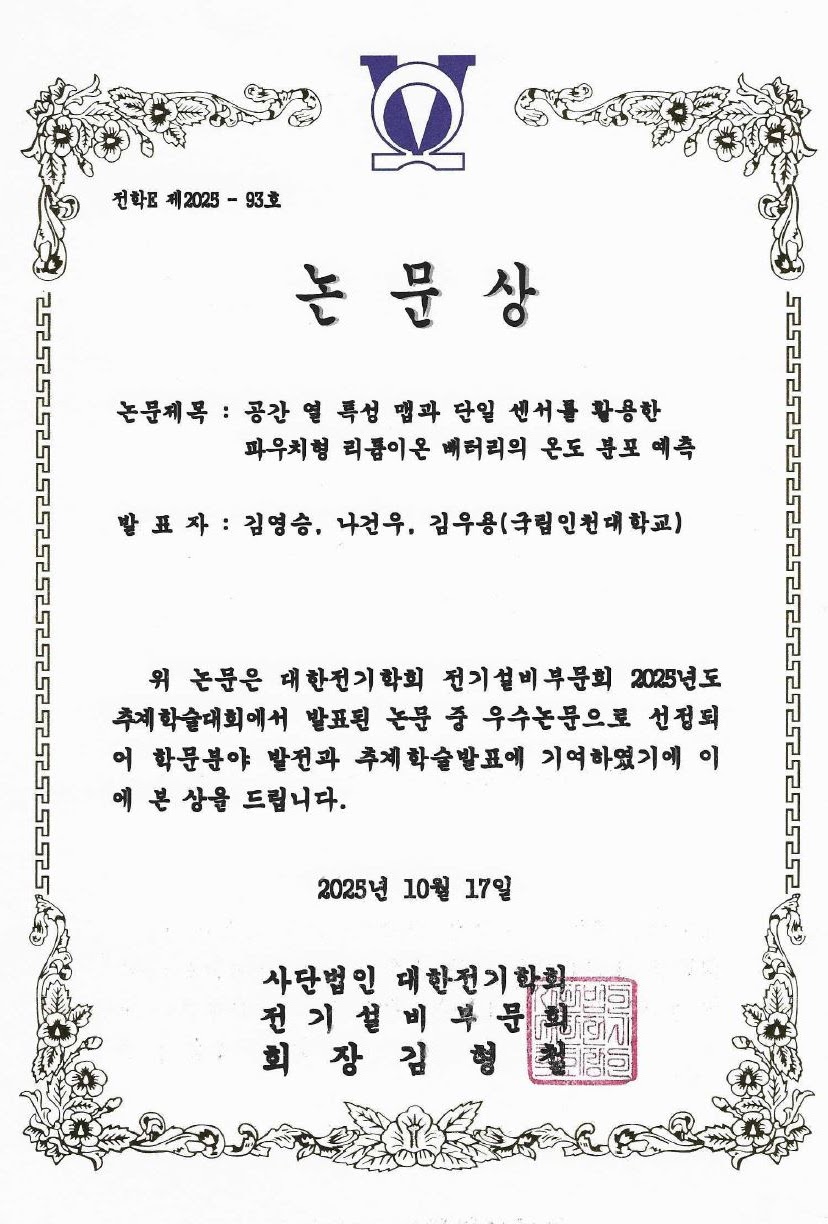 전학E 제2025 - 93호
논 문 상
논문제목 : 공간 열 특성 맵과 단일 센서를 활용한
파우치형 리튬이온 배터리의 온도 분포 예측
발 표 자 : 김영승, 나건우, 김우용(국립인천대학교)
위 논문은 대한전기학회 전기설비부문회 2025년도
추계학술대회에서 발표된 논문 중 우수논문으로 선정되
어 학문분야 발전과 추계학술발표에 기여하였기에 이
에 본 상을 드립니다.
2025년 10월 17일
사단법인 대한전기학회
전 기 설 비 부 문 회
회 장 김 형 철